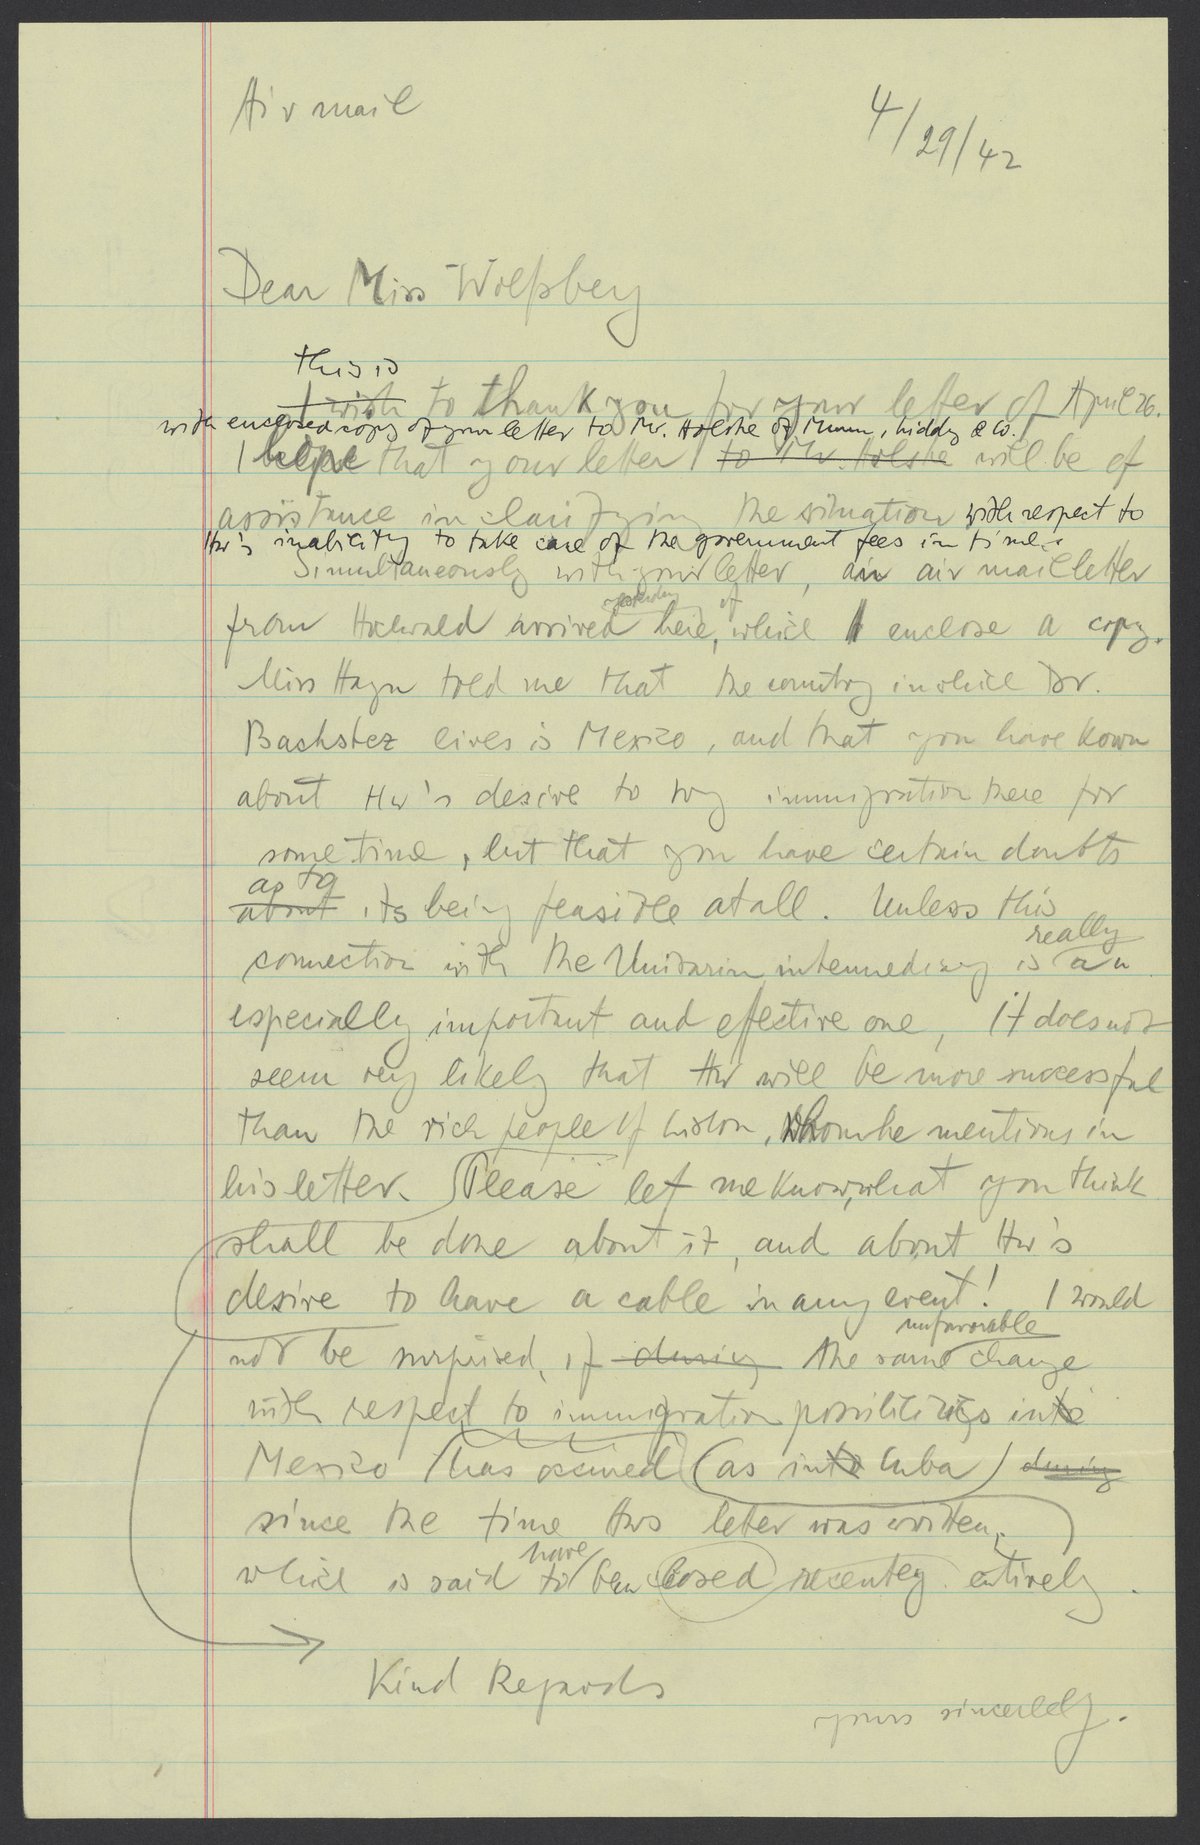 Air mail
4/29/42
Dear Miss Wolfsberg
this is
I wish to thank you for your letter of April 26.
with enclosed copy of your letter to Mr. Holske of Munn, Liddy & Co.
I hope that your letter to Mr. Holske will be of
assistance in clarifying the situation with respect to
Hw's inability to take care of the government fees in time.
Simultaneously with your letter, an air mail letter
yesterday of
from Hochwald arrived here, which I enclose a copy.
Miss Hagn told me that the country in which Dr.
Bachstez lives is Mexico, and that you have kown
about Hw's desire to try immigration there for
some time, but that you have certain doubts
as to
about its being feasible at all. Unless this
really
connection with the Unitarian intermediary is an
especially important and effective one, it does not
seem very likely that Hw will be more successful
than the rich people of Lisbon, whom he mentions in
his letter. Please let me know, what you think
shall be done about it, and about Hw's
desire to have a cable in any event! I would
unfavorable
not be surprised, if during the same change
with respect to immigration possibilities into
Mexico has occured (as into Cuba) during
since the time this letter was written,
have
which is said to been closed recently entirely.
Kind Regards
yours sincerely.